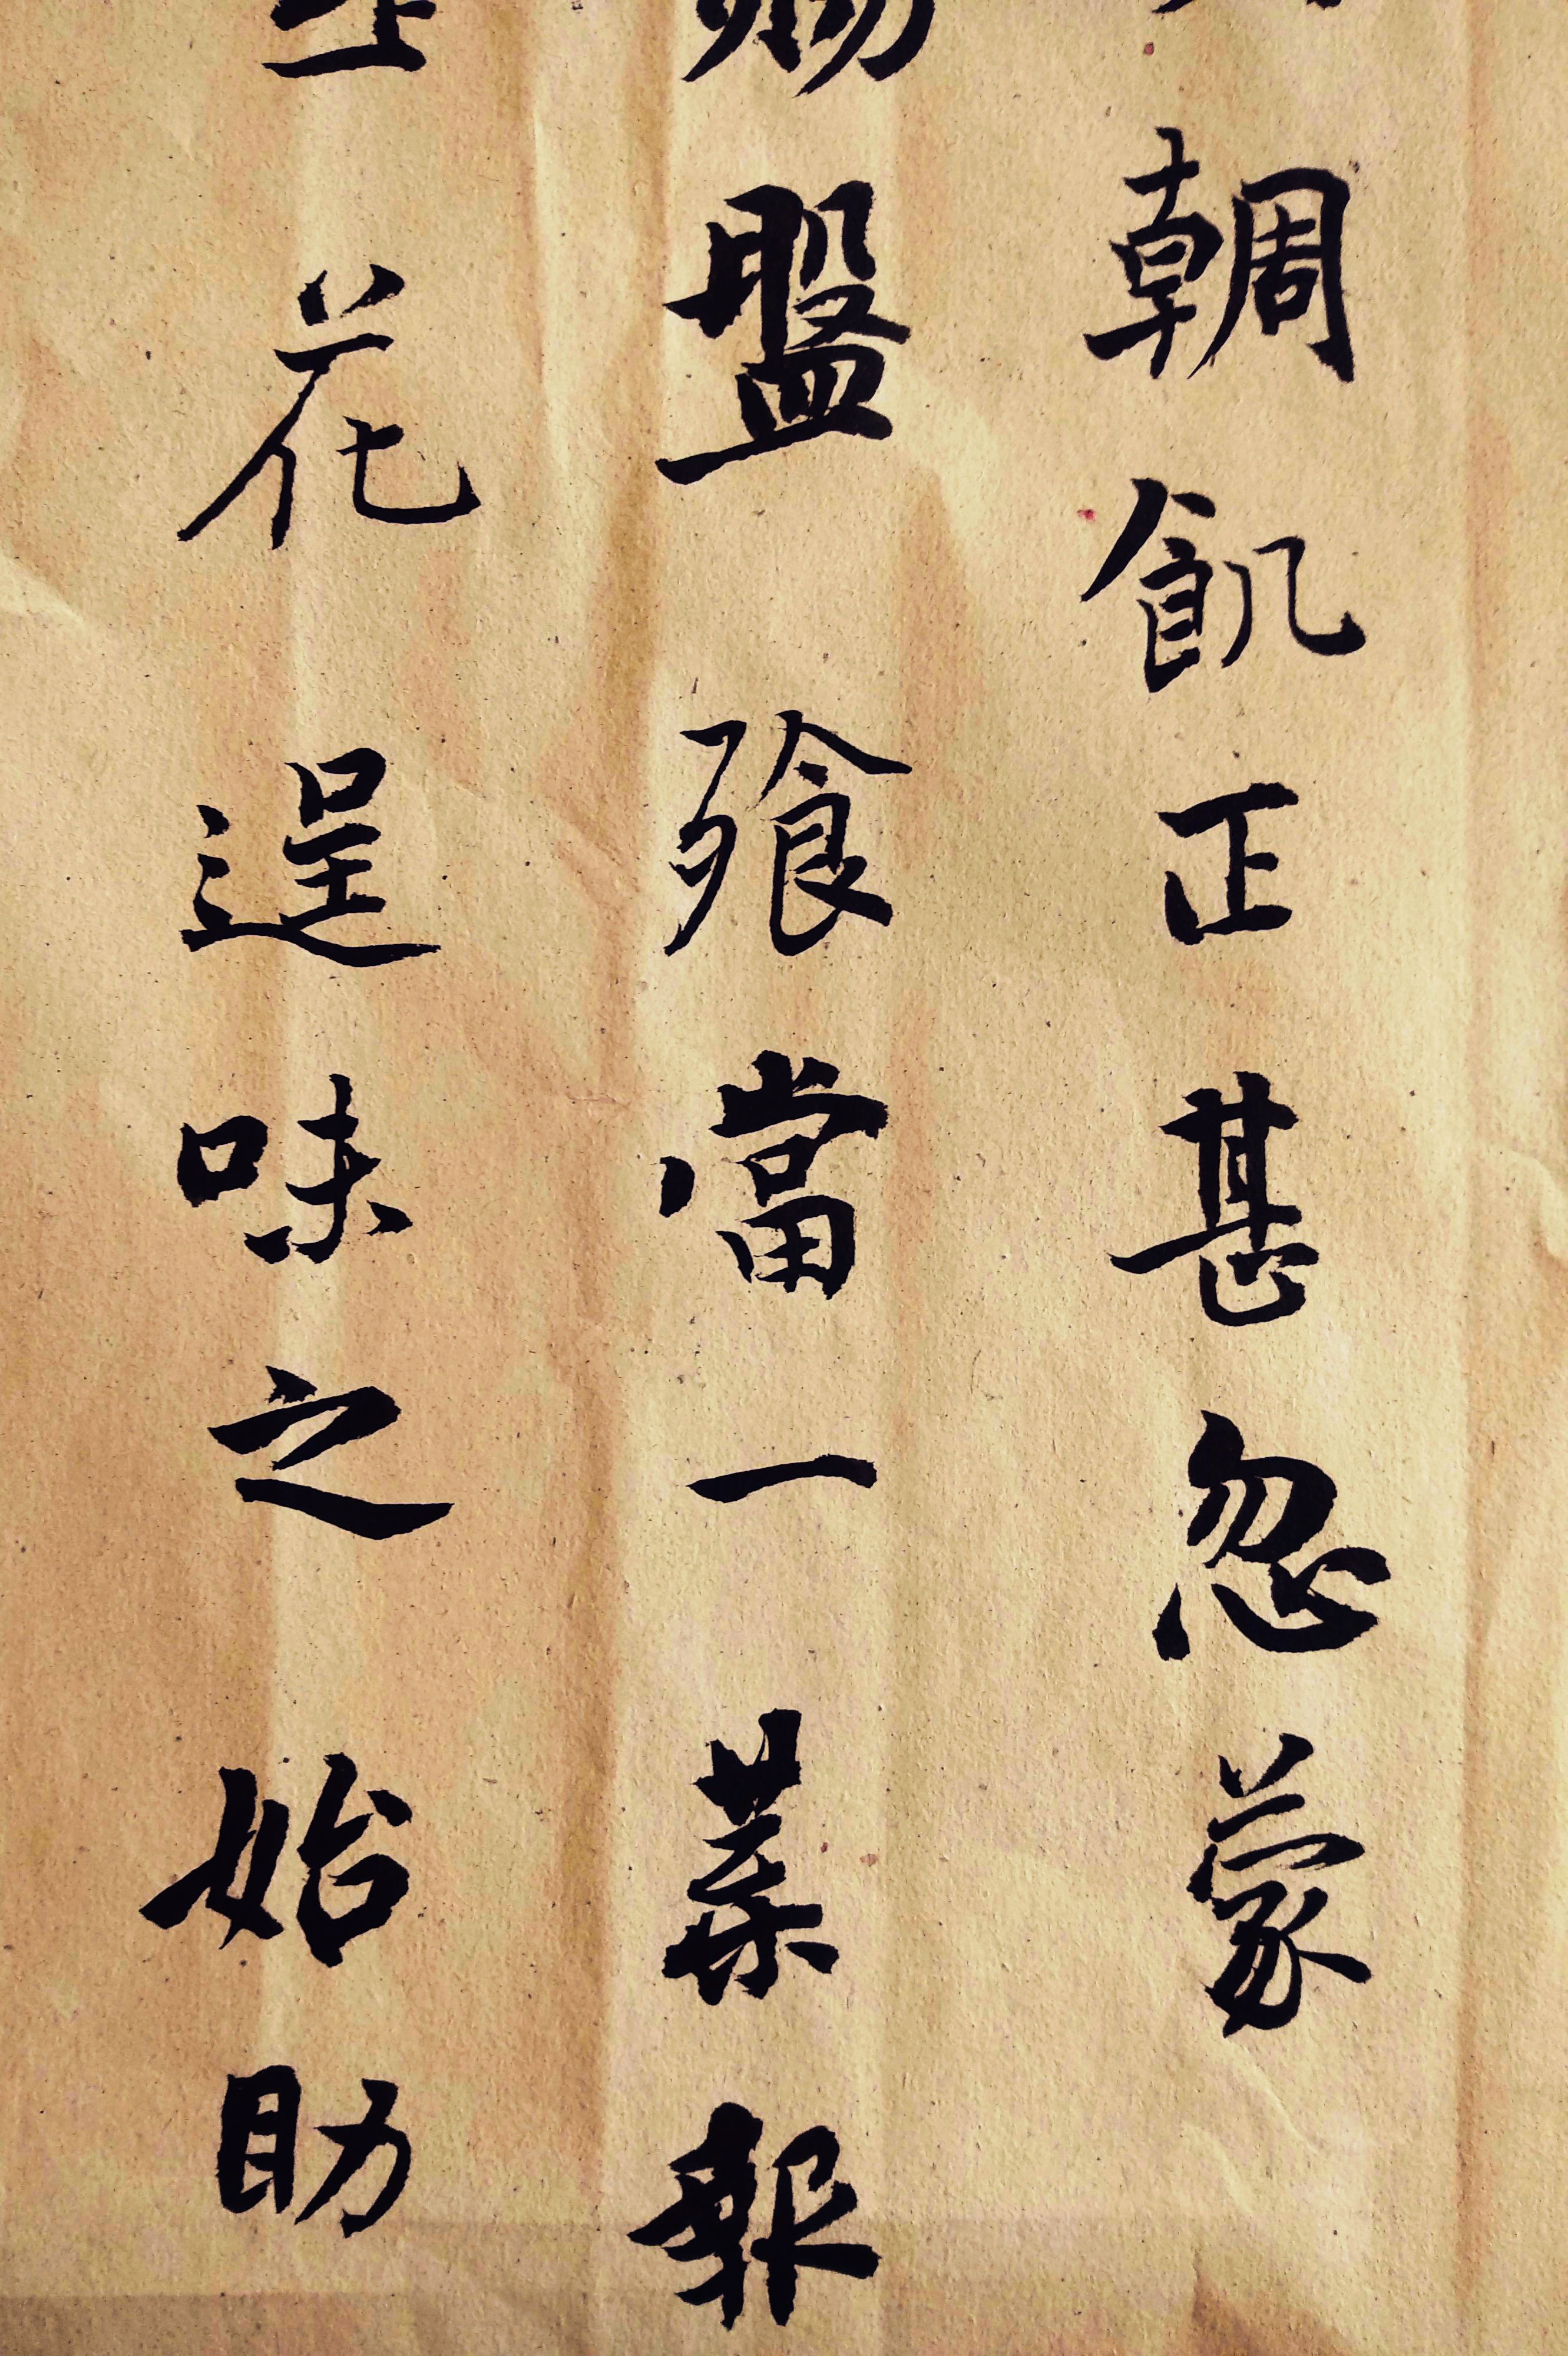 輖飢正甚忽蒙
賜盤飱當一葉報
花逞味之始助